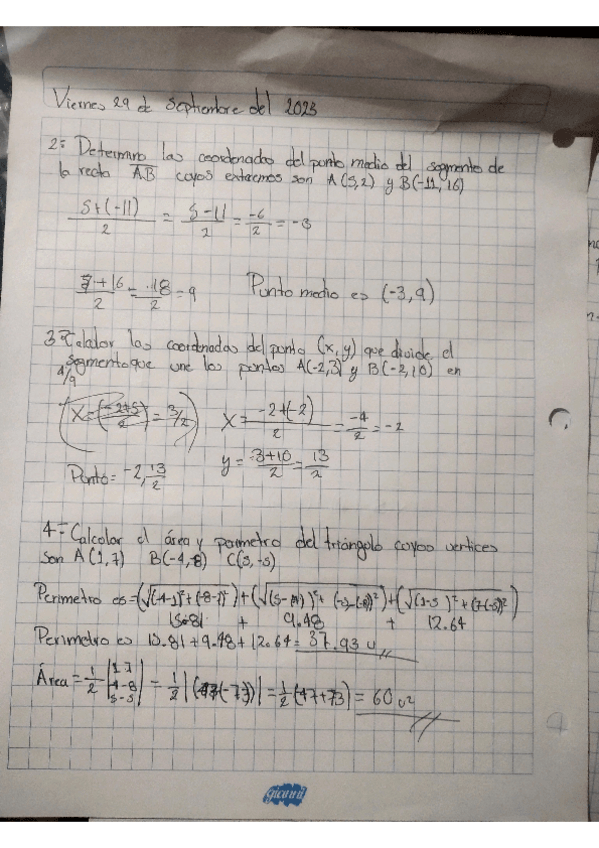 Viernes 29 de Septiembre del 2023
2= Determino las coordenadas del punto medio del segmento de
la recta AB cuyos extremos son A(5,2) y B(-11,16)
5+(-11)/2 = 5-11/2 = -6/2 = -3
2+16/2 = 18/2 = 9 Punto medio es (-3,9)
3= Calcular las coordenadas del punto (x,y) que divide el
segmento que une los puntos A(-2,3) y B(-2,10) en
1/9
X = -2+(-2)/2 = -4/2 = -2
y = 3+10/2 = 13/2
Punto = -2, 13/2
4= Calcular el área y perimetro del triángulo cuyos vertices
son A(1,7) B(-4,-8) C(5,-5)
Perimetro es =
15.81 + 9.48 + 12.64
Perimetro es 15.81+9.48+12.64 = 37.93 u
Área = 1/2 = 1/2 = 1/2 (47+73) = 60 u²